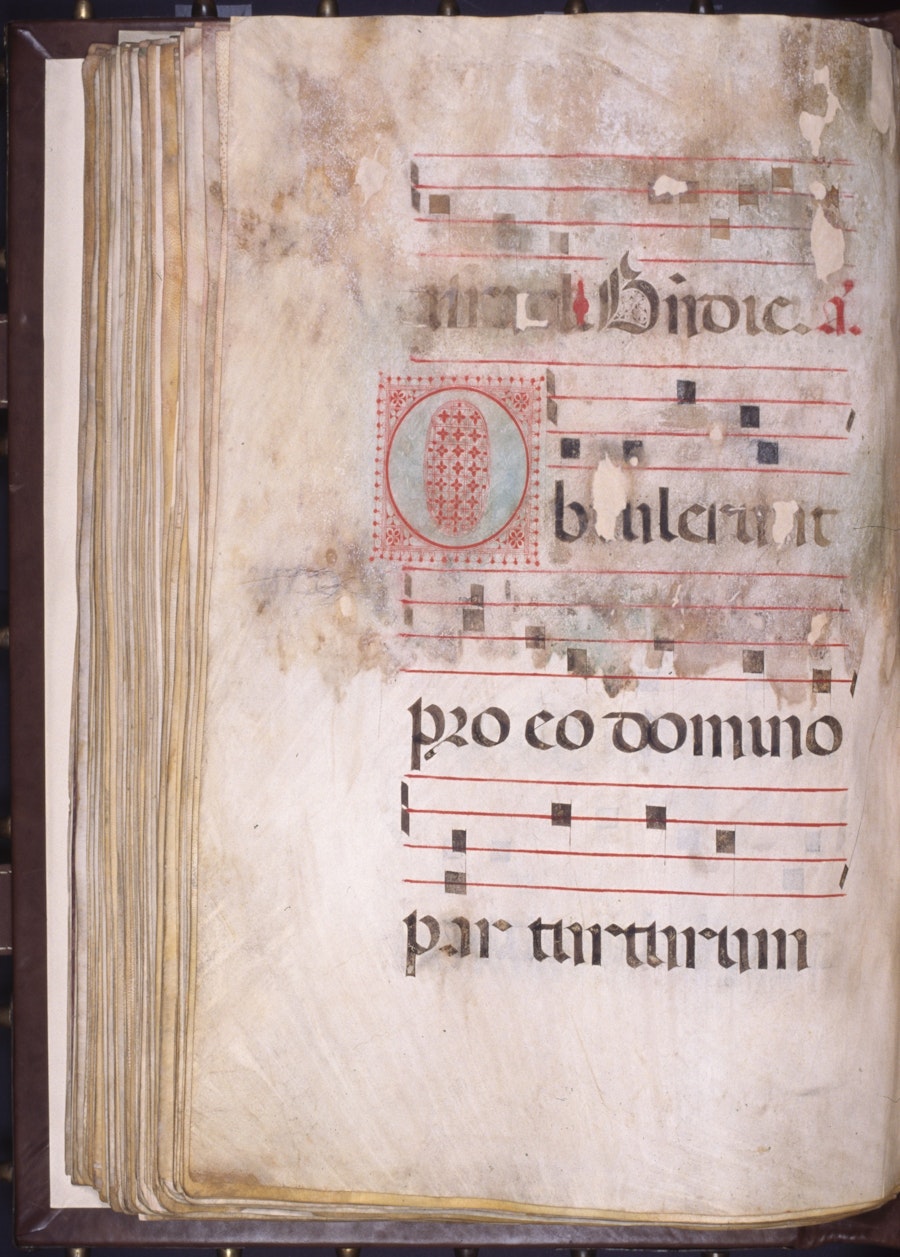 Bñdic. a.
Obtulerunt
pro eo domino
par turturum